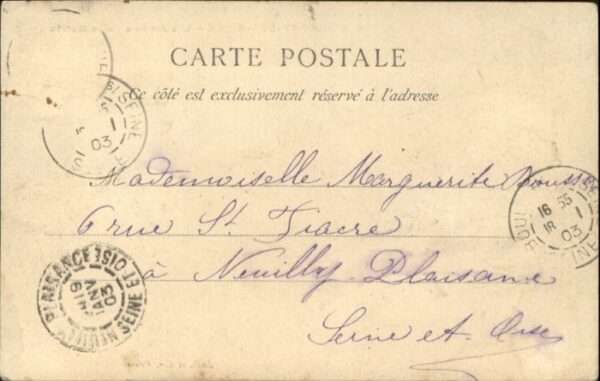 CARTE POSTALE
Ce côté est exclusivement réservé à l'adresse
SEINE
03
Mademoiselle Marguerite
6 rue St Fiacre
à Neuilly Plaisance
Seine et Oise
16 35
18 1
03
NEUILLY PLAISANCE
19
JANV
03
SEINE ET OISE